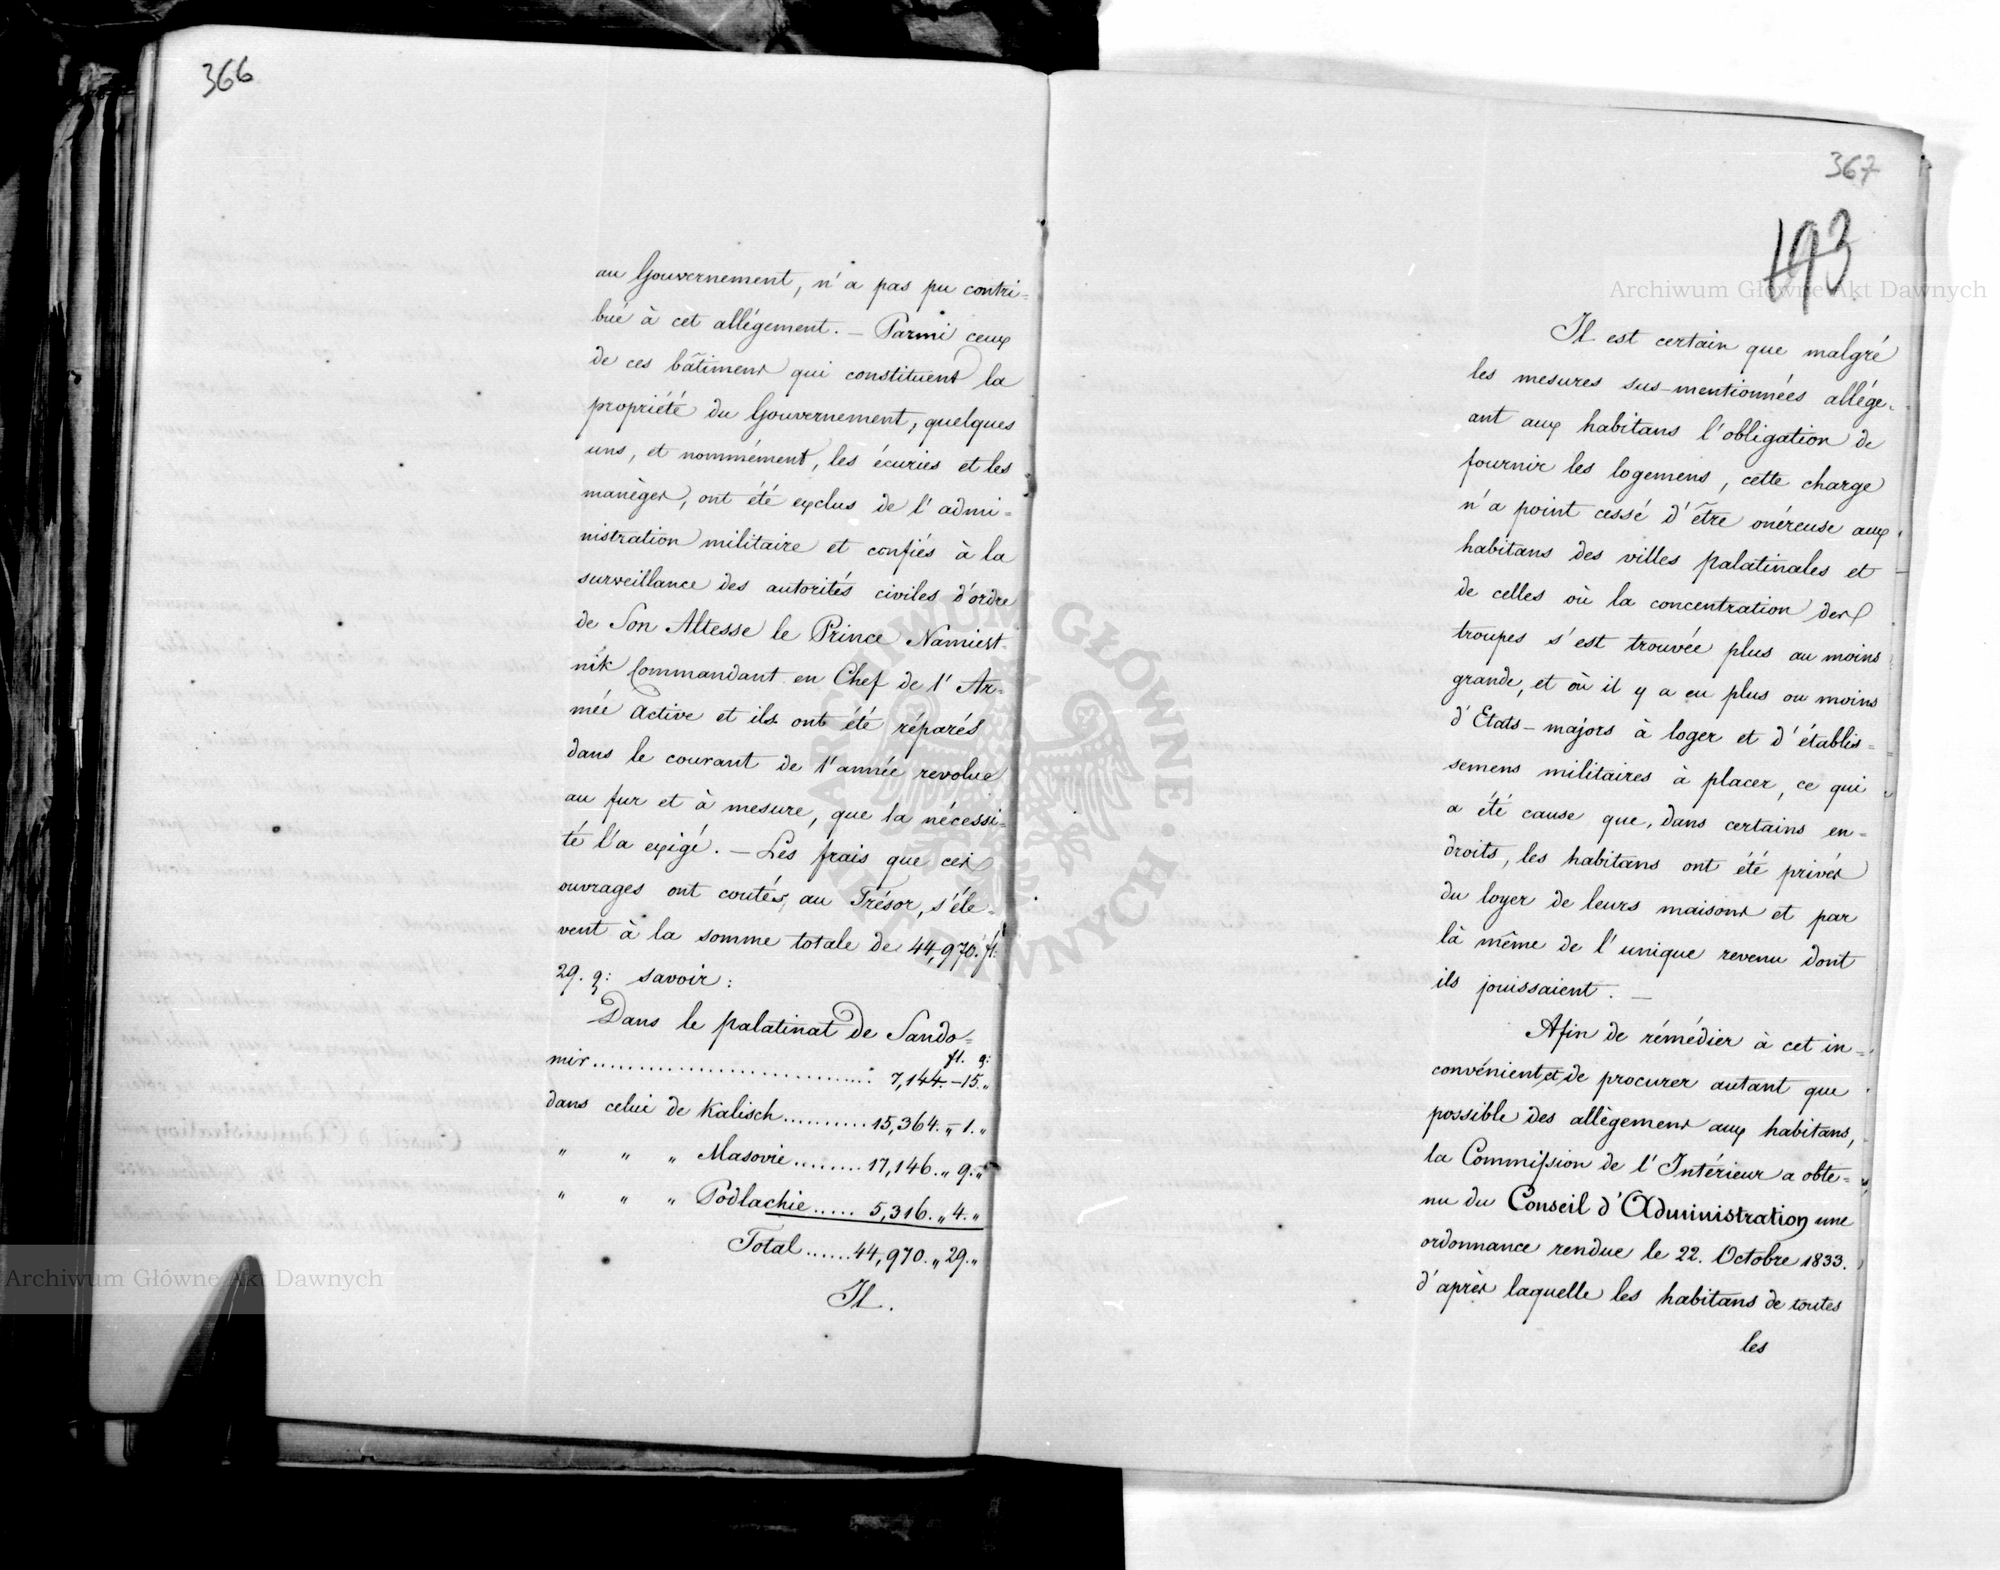 366
au Gouvernement, n'a pas pu contri=
bué à cet allégement. — Parmi ceux
de ces bâtimens qui constituent la
propriété du Gouvernement, quelques
uns, et nommément, les écuries et les
manèges, ont été exclus de l'admi=
nistration militaire et confiés à la
surveillance des autorités civiles d'ordre
de Son Altesse le Prince Namiest-
nik Commandant en Chef de l'Ar=
mée Active et ils ont été réparés
dans le courant de l'année revolue
au fur et à mesure, que la nécessi=
té l'a exigé. — Les frais que ces
ouvrages ont coutés, au Trésor, s'éle=
vent à la somme totale de 44,970. fl:
29. g: savoir:
Dans le palatinat de Sando=
fl. g:
mir.............................. 7,144. — 15. "
dans celui de Kalisch.......... 15,364. " — 1. "
" " " Masovie........ 17,146. " 9. "
" " " Podlachie..... 5,316. " 4. "
Total...... 44,970. " 29. "
Il.
367
193
Il est certain que malgré
les mesures sus-mentionnées allége-
ant aux habitans l'obligation de
fournir les logemens, cette charge
n'a point cessé d'être onéreuse aux
habitans des villes palatinales et
de celles où la concentration des
troupes s'est trouvée plus au moins
grande, et où il y a eu plus ou moins
d'Etats-majors à loger et d'établis=
semens militaires à placer, ce qui
a été cause que, dans certains en=
droits, les habitans ont été privés
du loyer de leurs maisons et par
là même de l'unique revenu dont
ils jouissaient. —
Afin de rémédier à cet in=
convénient et de procurer autant que
possible des allègemens aux habitans,
la Commission de l'Intérieur a obte=
nu du Conseil d'Administration une
ordonnance rendue le 22. Octobre 1833.
d'après laquelle les habitans de toutes
les
Archiwum Główne Akt Dawnych
Archiwum Główne Akt Dawnych
ARCHIWUM GŁÓWNE AKT DAWNYCH